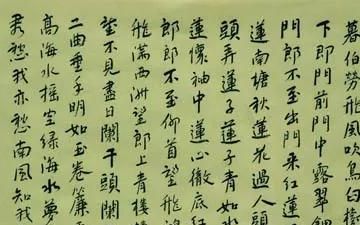 暮伯勞飛風吹烏臼樹
下即門前門中露翠鈿
門郎不至出門采紅蓮
蓮南塘秋蓮花過人頭
頭弄蓮子蓮子青如水
蓮懷袖中蓮心徹底紅
郎郎不至仰首望飛鴻
飛滿西洲望郎上青樓
望不見盡日闌干頭闌
二曲垂手明如玉卷簾
高海水搖空綠海水夢
君愁我亦愁南風知我